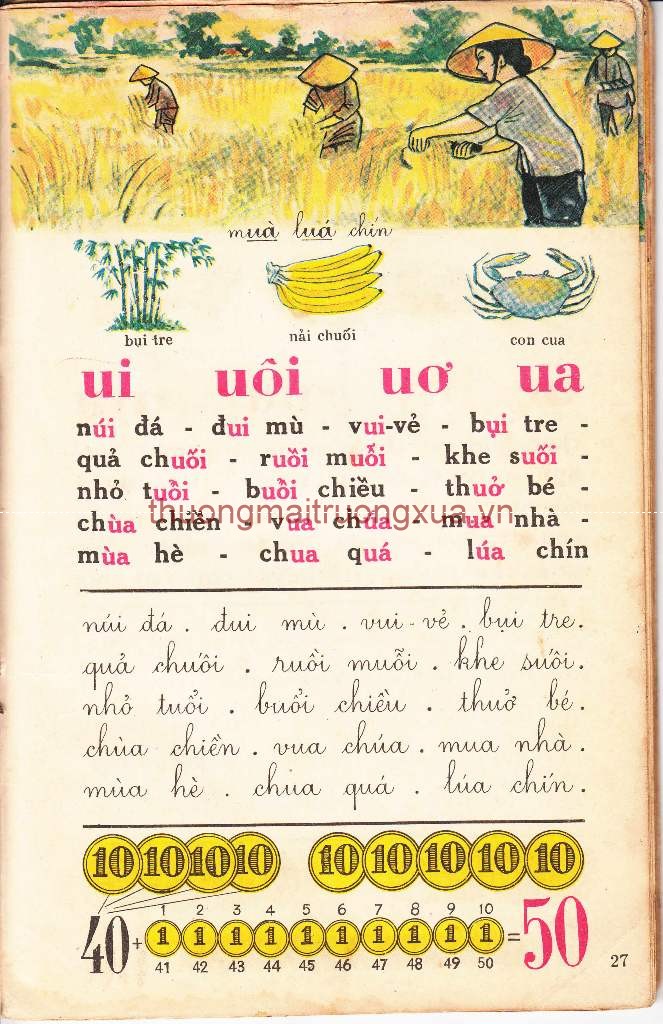 muà luá chín
bụi tre nải chuối con cua
ui uôi uơ ua
núi đá - đui mù - vui-vẻ - bụi tre -
quả chuối - ruồi muỗi - khe suối -
nhỏ tuổi - buổi chiều - thuở bé -
thuongmaitruongxua.vn
chùa chiền - vua chúa - mua nhà -
mùa hè - chua quá - lúa chín
núi đá . đui mù . vui-vẻ . bụi tre.
quả chuối . ruồi muỗi . khe suối.
nhỏ tuổi . buổi chiều . thuở bé .
chùa chiền . vua chúa . mua nhà .
mùa hè . chua quá . lúa chín .
10 10 10 10 10 10 10 10 10
1 2 3 4 5 6 7 8 9 10
40 + 1 1 1 1 1 1 1 1 1 1 = 50
41 42 43 44 45 46 47 48 49 50
27